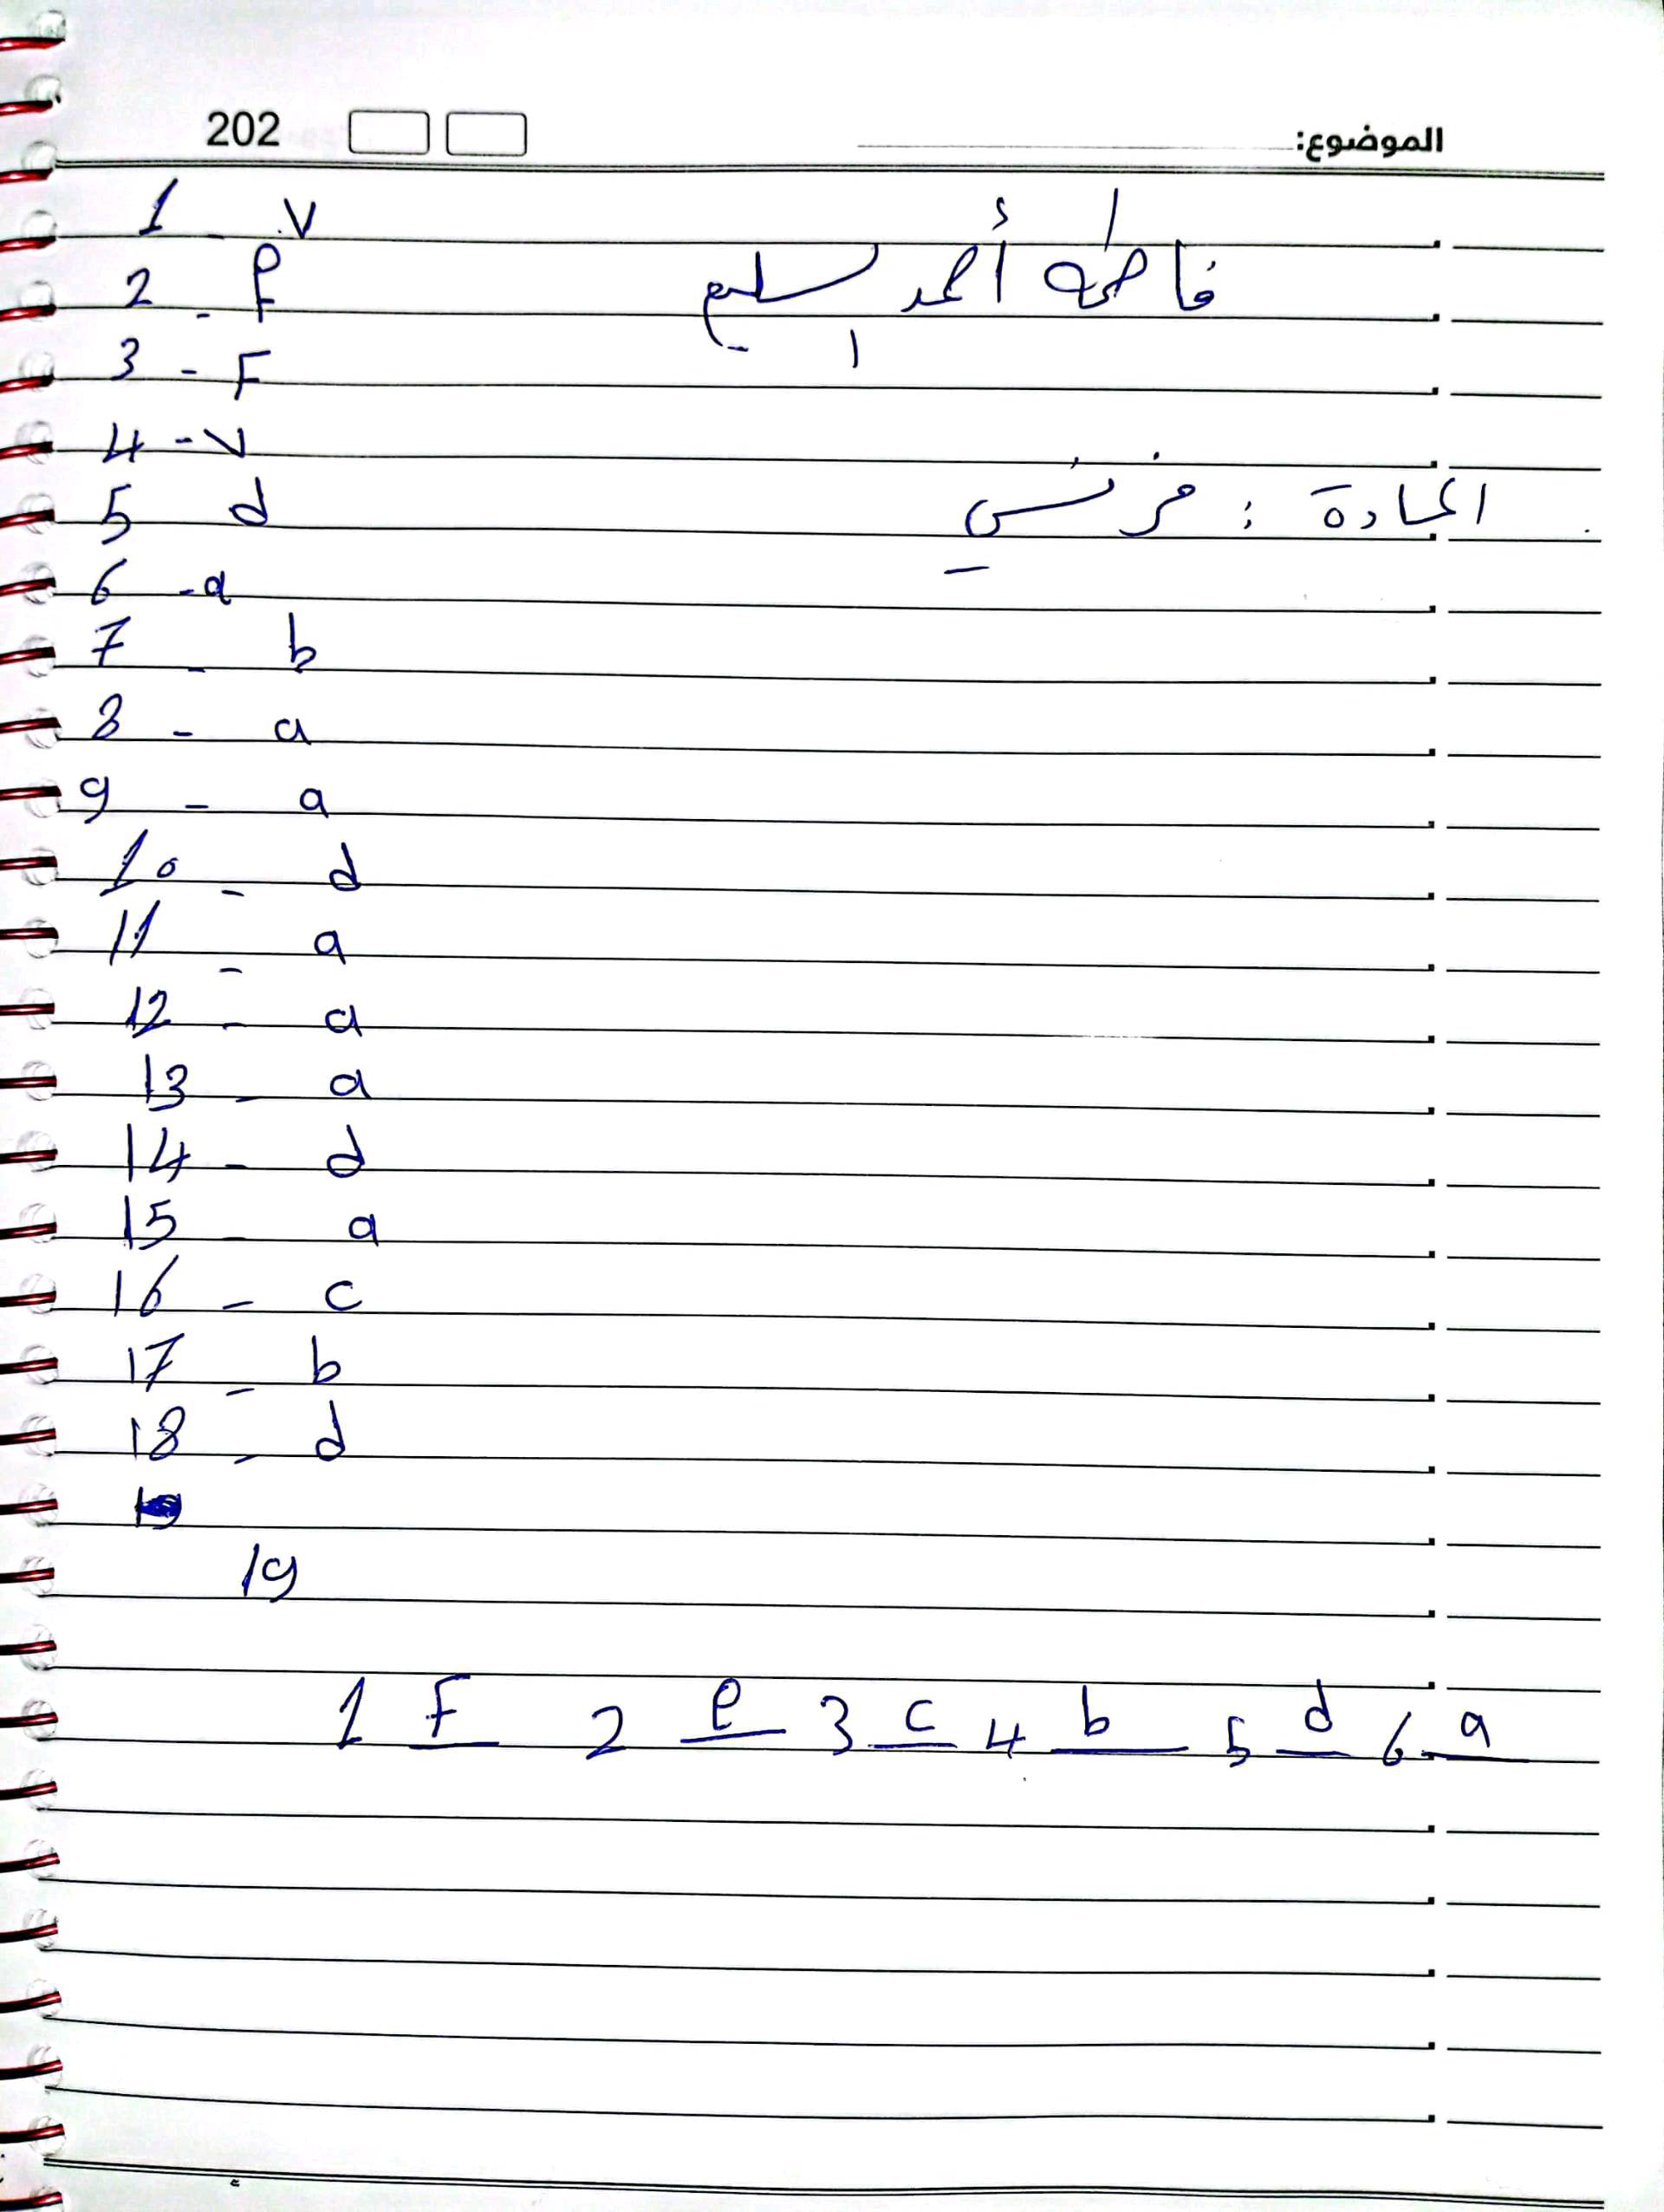 الموضوع: 202
1 - V
أ /
2 - F
فاطمه أحمد سليم
3 - F
4 - V
5 d
المادة : فرنسي
6 - a
7 - b
8 - a
9 - a
10 - d
11 - a
12 - a
13 - a
14 - d
15 - a
16 - c
17 - b
18 - d
19
1 F 2 e 3 c 4 b 5 d 6 a